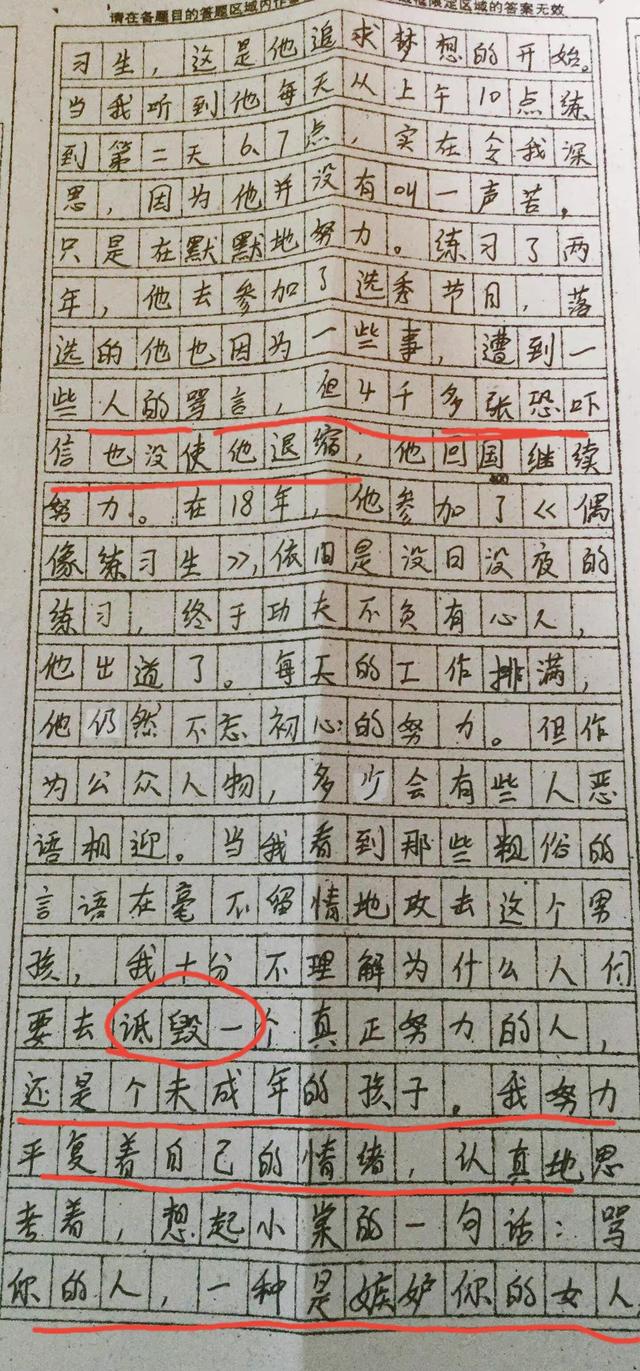 请在各题目的答题区域内作 限定区域的答案无效
习生，这是他追求梦想的开始。
当我听到他每天从上午10点练
到第二天6、7点，实在令我深
思，因为他并没有叫一声苦，
只是在默默地努力。练习了两
年，他去参加了选秀节目，落
选的他也因为一些事，遭到一
些人的骂言，但4千多张恐吓
信也没使他退缩，他回国继续
努力。在18年，他参加了《偶
像练习生》，依旧是没日没夜的
练习，终于功夫不负有心人，
他出道了。每天的工作排满，
他仍然不忘初心的努力。但作
为公众人物，多少会有些人恶
语相迎。当我看到那些粗俗的
言语在毫不留情地攻去这个男
孩，我十分不理解为什么人们
要去诋毁一个真正努力的人，
还是个未成年的孩子。我努力
平复着自己的情绪，认真地思
考着，想起小棠的一句话：骂
你的人，一种是嫉妒你的女人